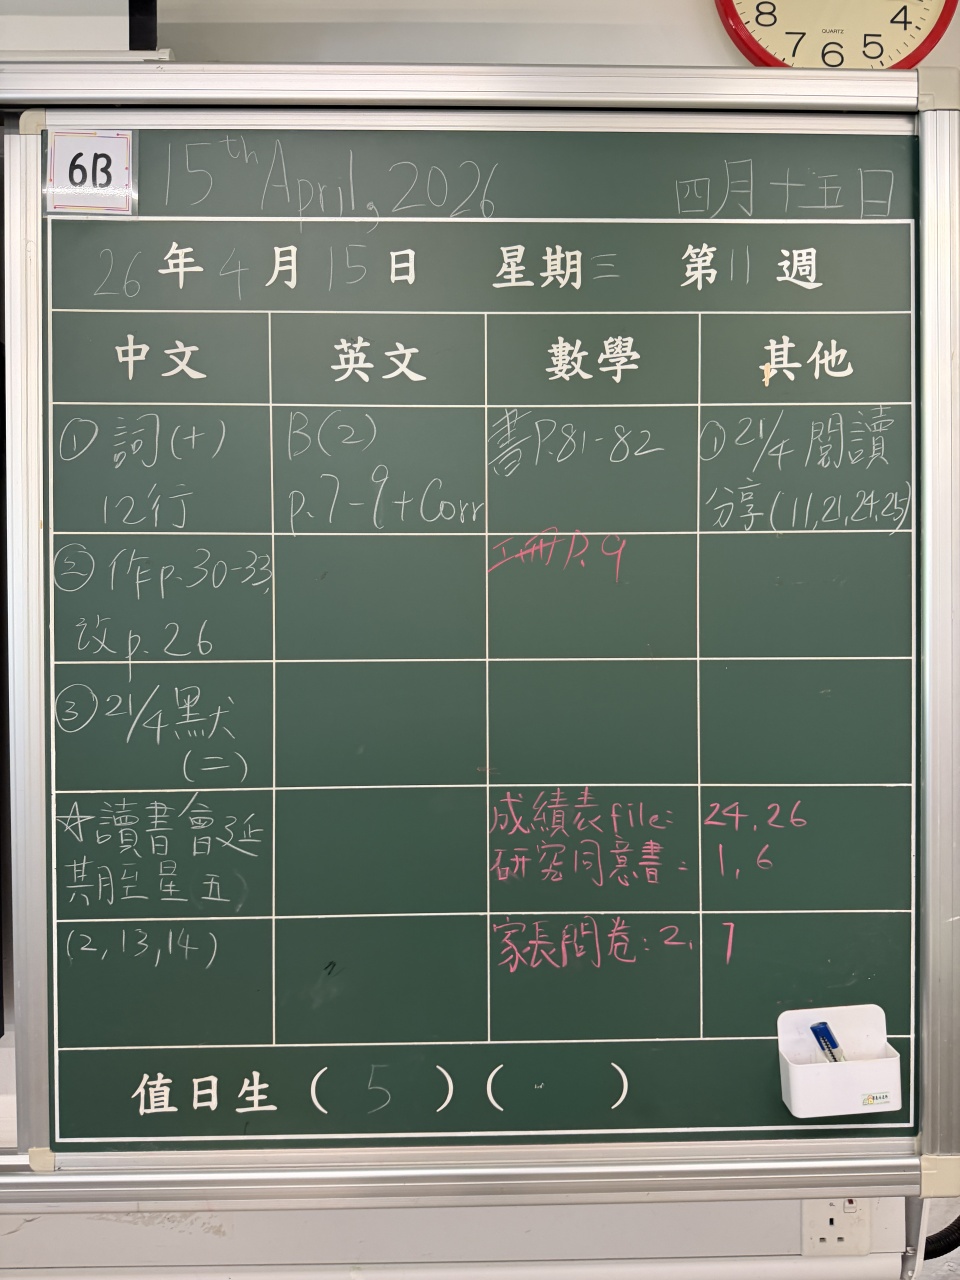 8 7 6 5 4
QUARTZ
6B
15th April, 2026
四月十五日
26年4月15日 星期三 第11週
中文 英文 數學 其他
① 詞(十)
12行
B(2)
p.7-9+Corr
書P.81-82
① 21/4 閱讀
分享(11,21,24,25)
② 作p.30-33,
改p.26
工冊P.9
③ 21/4 默
(二)
☆讀書會延
期至星(五)
成績表file: 24, 26
研究同意書: 1, 6
(2,13,14)
家長問卷: 2, 7
值日生 ( 5 ) ( )